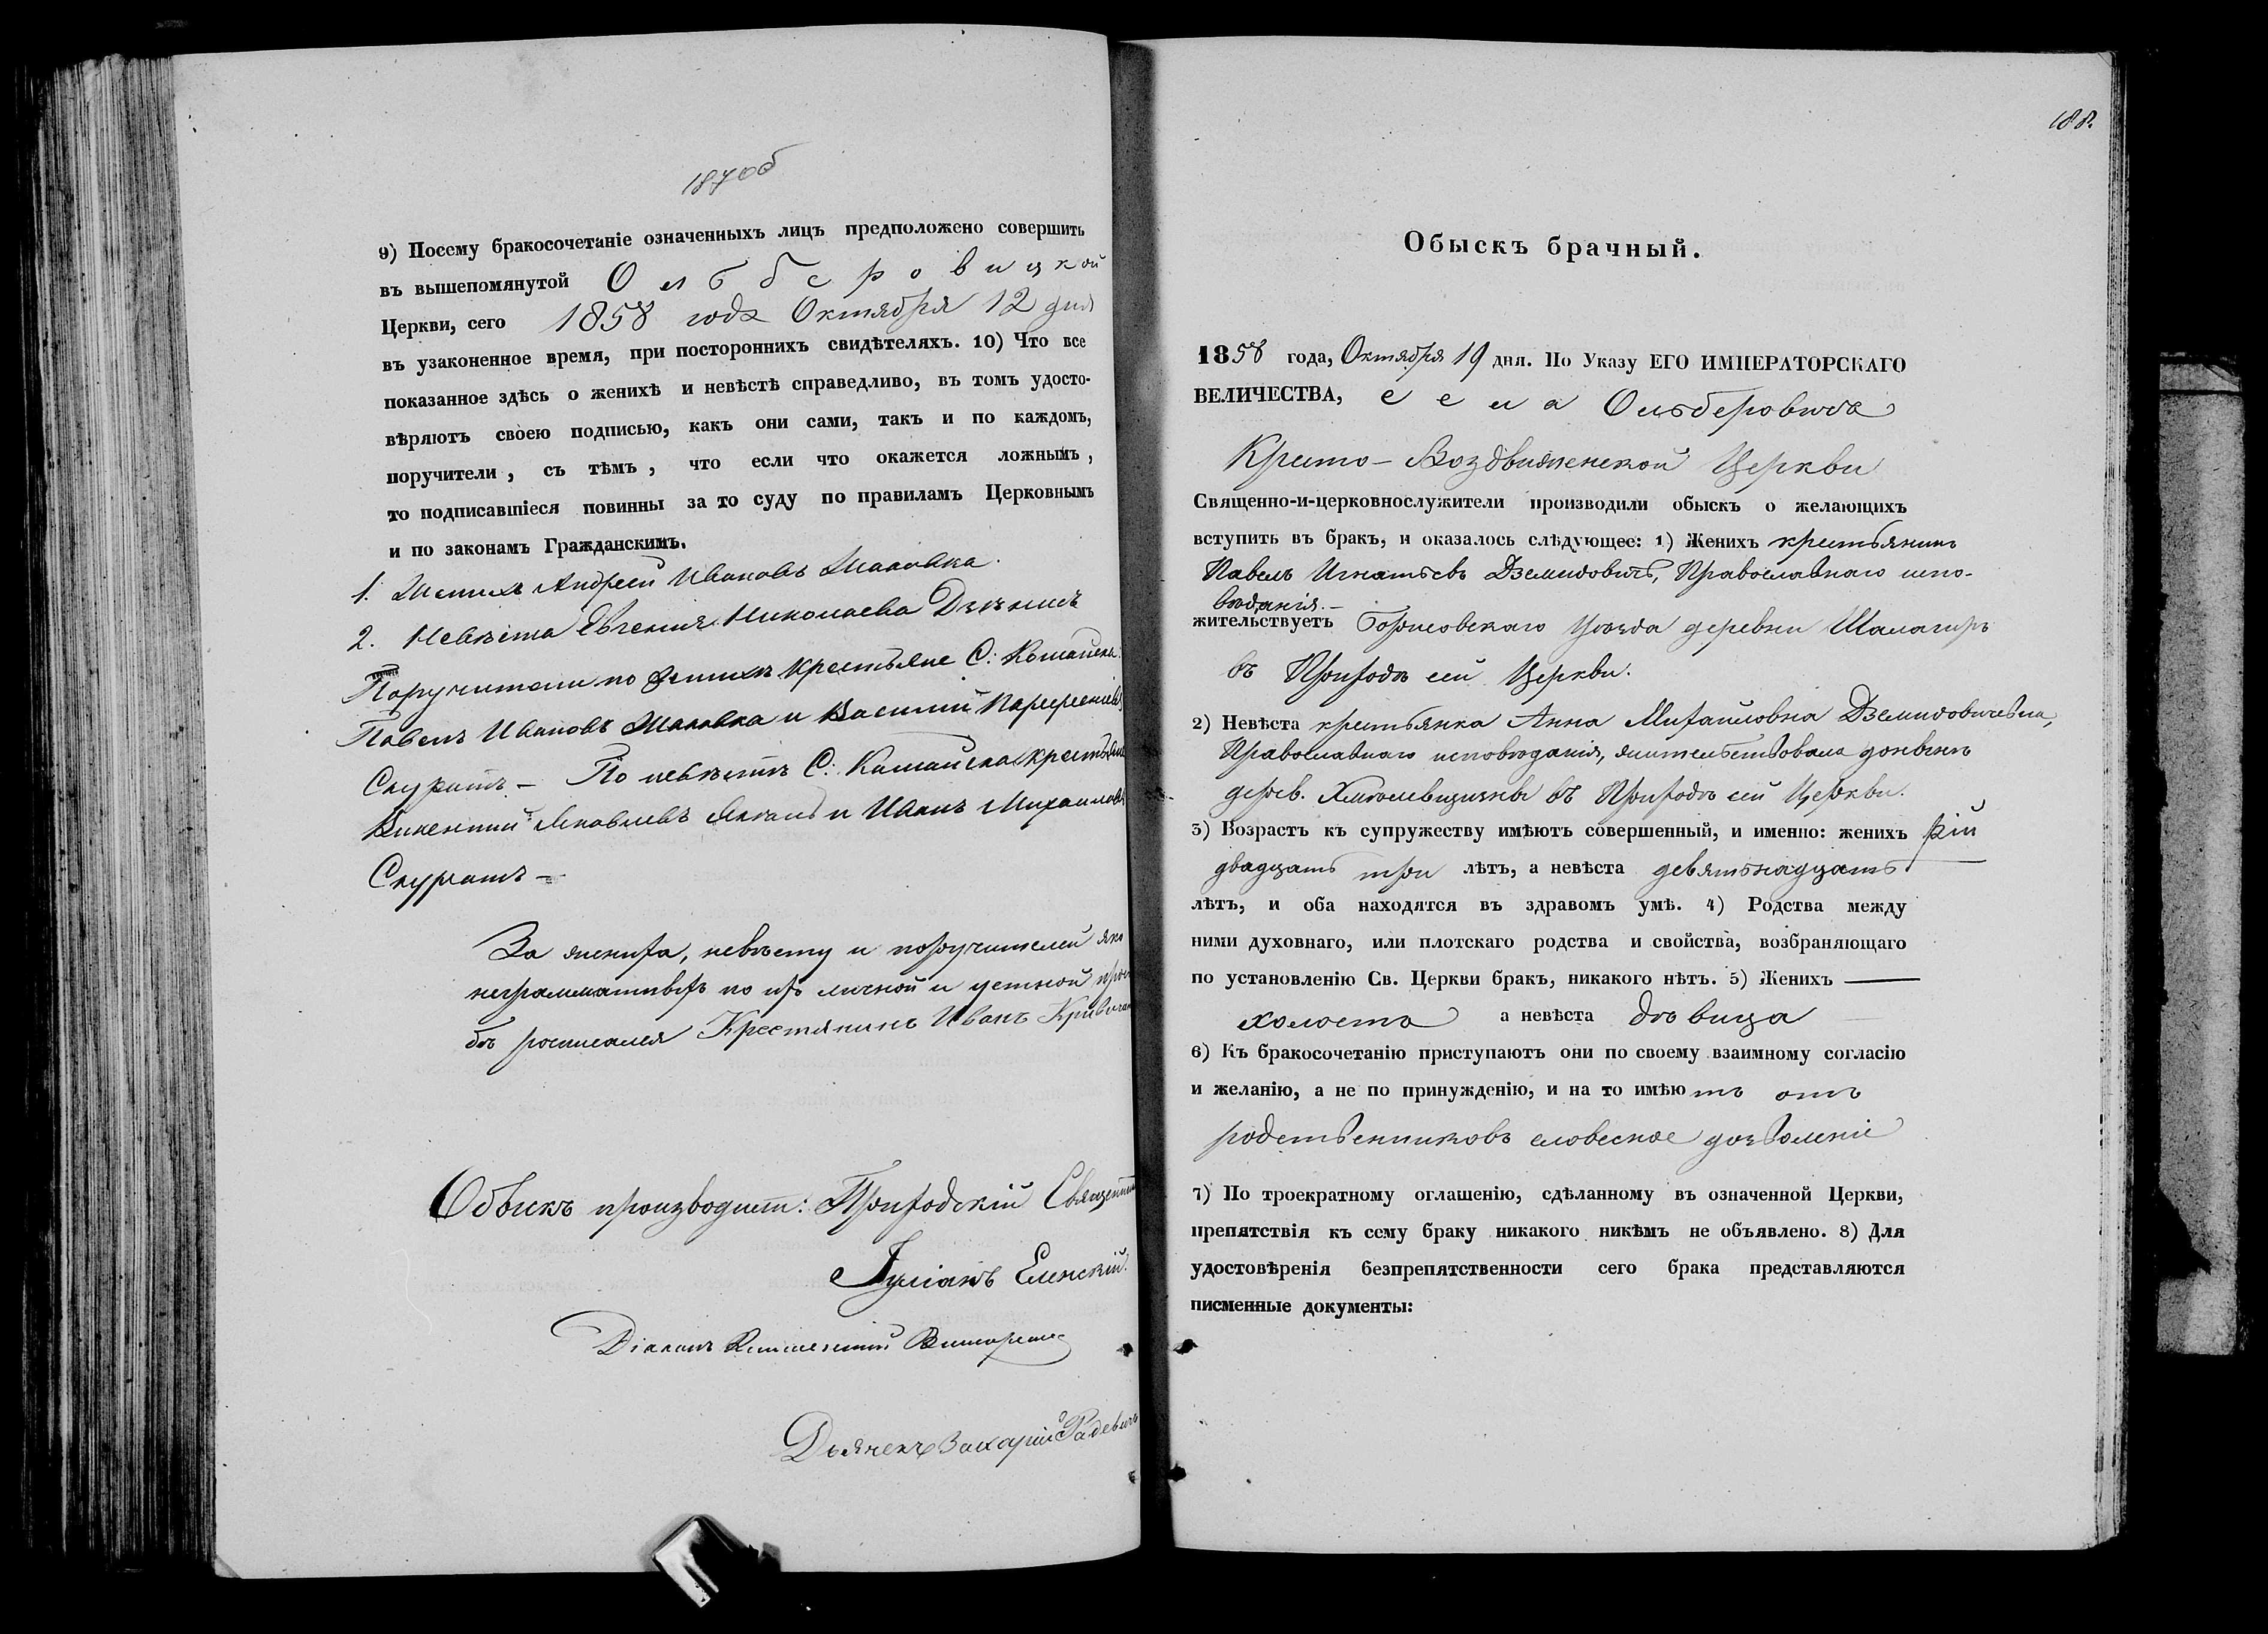 187об
9) Посему бракосочетаніе означенныхъ лицъ предположено совершить
въ вышепомянутой Ольберовицкой
Церкви, сего 1858 года Октября 12 дня
въ узаконенное время, при постороннихъ свидѣтеляхъ. 10) Что все
показанное здѣсь о женихѣ и невѣстѣ справедливо, въ томъ удосто-
вѣряютъ своею подписью, какъ они сами, такъ и по каждомъ,
поручители, съ тѣмъ, что если что окажется ложнымъ,
то подписавшіеся повинны за то суду по правиламъ Церковнымъ
и по законамъ Гражданскимъ.
1. Женихъ Андрей Ивановъ
2. Невѣста Евгения Николаева
Поручители по женихѣ крестьяне С:
Павелъ Ивановъ и Василий
Скуратъ – По невѣстѣ С: крестьяне
Викентий Яковлевъ и Иванъ Михаиловъ
Скуратъ –
За жениха, невѣсту и поручителей яко
неграмматныхъ по ихъ личной и устной прось
бѣ росписался Крестянинъ Иванъ
Обыскъ производит: Приходскій Священник
Іуліанъ Еленскій.
Діаконъ
Дьячекъ Захарій Радевичъ
188.
Обыскъ брачный.
1858 года, Октября 19 дня. По Указу ЕГО ИМПЕРАТОРСКАГО
ВЕЛИЧЕСТВА, села Ольберовичъ
Кресто-Воздвиженской Церкви
Священно-и-церковнослужители производили обыскъ о желающихъ
вступить въ бракъ, и оказалось слѣдующее: 1) Женихъ крестьянинъ
Павелъ Игнатьевъ Дземидовичъ, Православнаго испо-
вѣданія.–
жительствуетъ Борисовскаго Уѣзда деревни
въ Приходѣ сей Церкви.
2) Невѣста крестьянка Анна Михайловна Дземидовичевна,
Православнаго исповѣданія, жительствовала донынѣ
дерев. въ Приходѣ сей Церкви.
3) Возрастъ къ супружеству имѣютъ совершенный, и именно: женихъ
двадцать три лѣтъ, а невѣста девятьнадцать
лѣтъ, и оба находятся въ здравомъ умѣ. 4) Родства между
ними духовнаго, или плотскаго родства и свойства, возбраняющаго
по установленію Св. Церкви бракъ, никакого нѣтъ. 5) Женихъ
холостъ а невѣста дѣвица
6) Къ бракосочетанію приступаютъ они по своему взаимному согласію
и желанію, а не по принужденію, и на то имѣютъ отъ
родственниковъ словесное дозволеніе
7) По троекратному оглашенію, сдѣланному въ означенной Церкви,
препятствія къ сему браку никакого никѣмъ не объявлено. 8) Для
удостовѣренія безпрепятственности сего брака представляются
писменные документы: